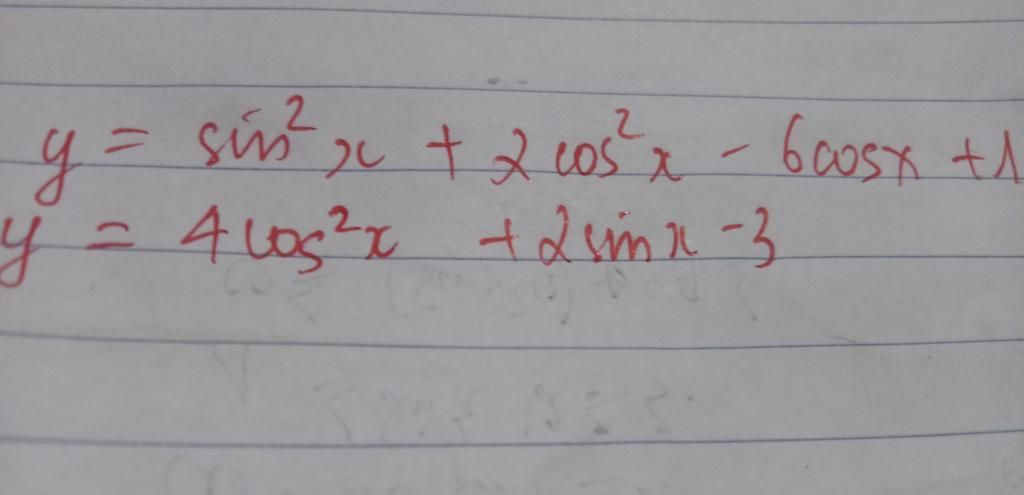 y = sin²x + 2cos²x - 6cosx + 1
y = 4cos²x + 2sinx - 3